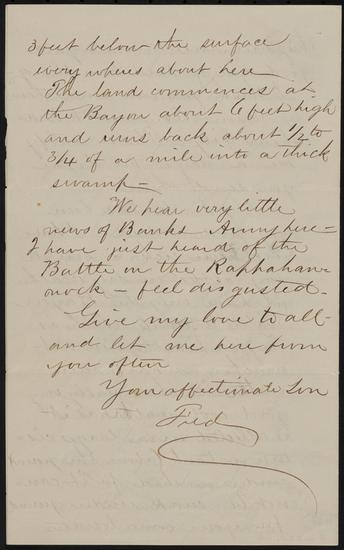 3 feet below the surface
every wheres about here
The land commences at
the Bayou about 6 feet high
and runs back about 1/2 to
3/4 of a mile into a thick
swamp -
We hear very little
news of Banks Army here -
I have just heard of the
Battle on the Raphahan-
nock - feel disgusted.
Give my love to all -
and let me here from
you often
Your affectionate Son
Fred